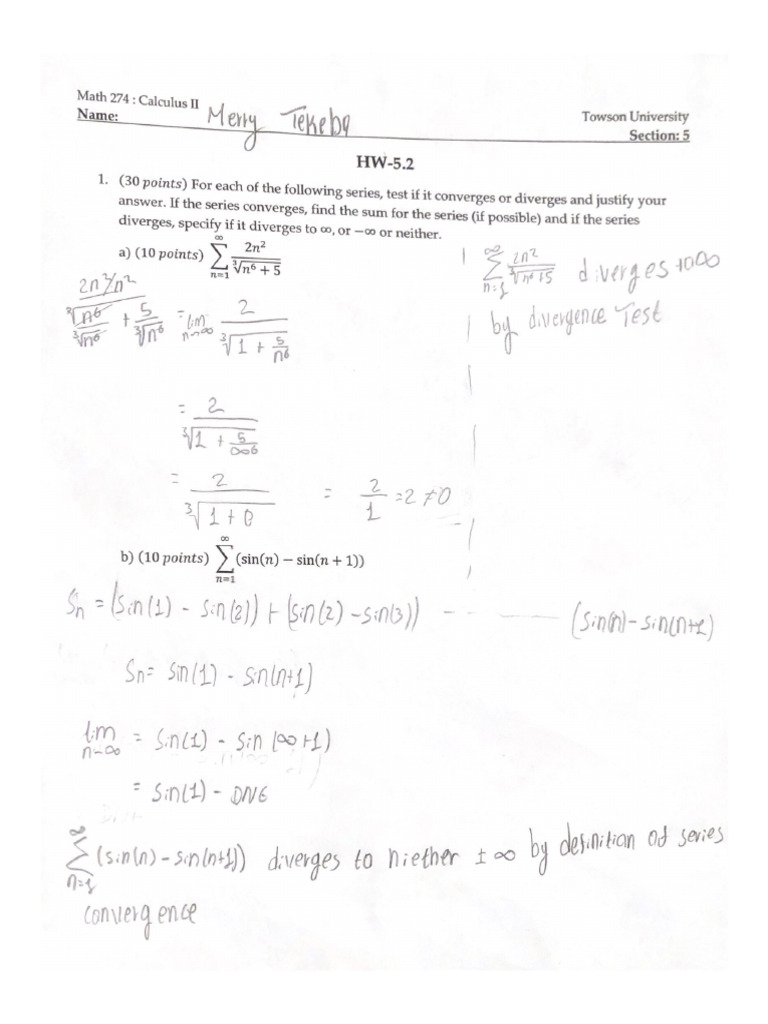 Math 274 : Calculus II
Towson University
Name: Merry Tekeba
Section: 5
HW-5.2
1. (30 points) For each of the following series, test if it converges or diverges and justify your
answer. If the series converges, find the sum for the series (if possible) and if the series
diverges, specify if it diverges to ∞, or −∞ or neither.
a) (10 points) ∑_{n=1}^{∞} 2n²/∛(n⁶ + 5)
∑_{n=1}^{∞} 2n²/∛(n⁶+5) diverges to ∞
by divergence Test
(2n²/n²)/(∛n⁶/∛n⁶ + 5/∛n⁶) = lim_{n→∞} 2/∛(1 + 5/n⁶)
= 2/∛(1 + 5/∞⁶)
= 2/∛(1 + 0) = 2/1 = 2 ≠ 0
b) (10 points) ∑_{n=1}^{∞} (sin(n) − sin(n + 1))
Sn = (sin(1) - sin(2)) + (sin(2) - sin(3)) - - - (sin(n) - sin(n+1)
Sn = sin(1) - sin(n+1)
lim_{n→∞} = sin(1) - sin(∞+1)
= sin(1) - DNE
∑_{n=1}^{∞} (sin(n) - sin(n+1)) diverges to niether ±∞ by definition of series
convergence